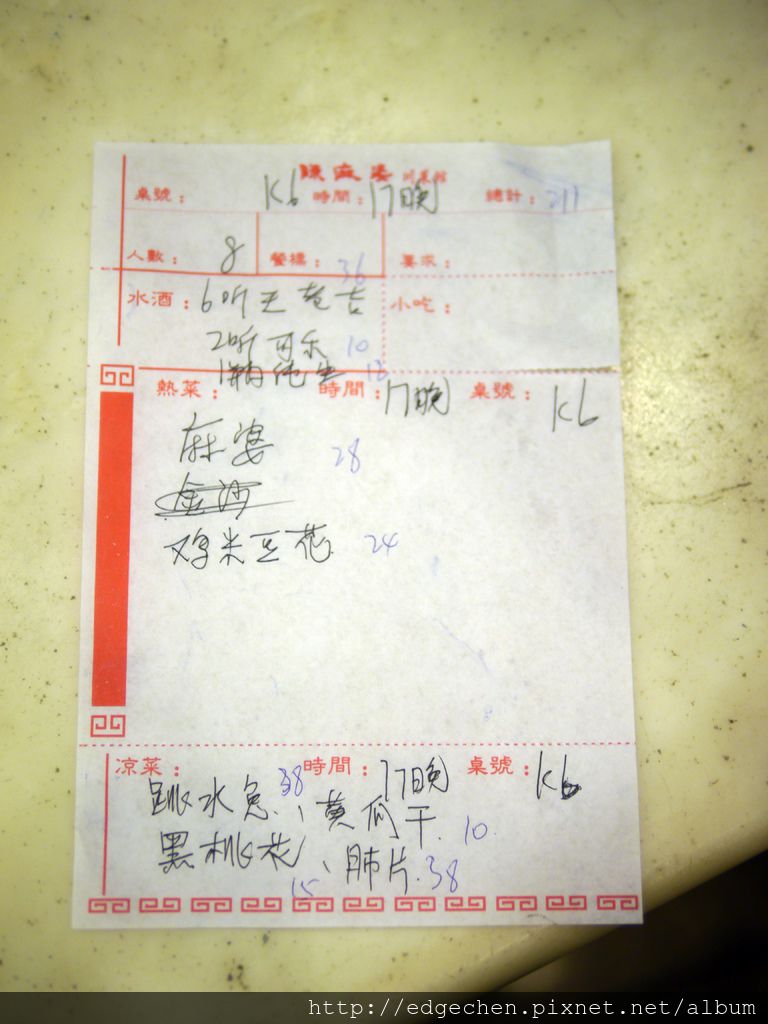 陳麻婆 川菜館
桌號： K6 時間： 17晚 總計： 211
人數： 8 營標： 要求：
36
水酒： 6听王老吉 小吃：
2听可乐 10
1瓶纯生 12
熱菜： 時間： 17晚 桌號： K6
麻婆 28
金沙
鸡米豆花 24
凉菜： 38 時間： 17晚 桌號： K6
跳水兔、黄瓜干. 10
黑桃花、肺片. 38
15
http://edgechen.pixnet.net/album